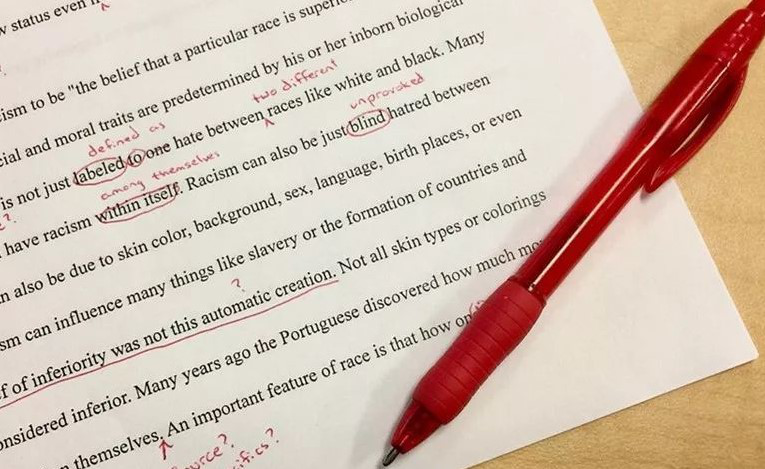 status even
?
ism to be "the belief that a particular race is
cial and moral traits are predetermined by his or her inborn biological
two different
is not just labeled to one hate between races like white and black. Many
defined as
unprovoked
have racism within itself. Racism can also be just blind hatred between
among themselves
also be due to skin color, background, sex, language, birth places, or even
sm can influence many things like slavery or the formation of countries and
?
of inferiority was not this automatic creation. Not all skin types or colorings
onsidered inferior. Many years ago the Portuguese discovered how much
themselves. An important feature of race is that how
?
?